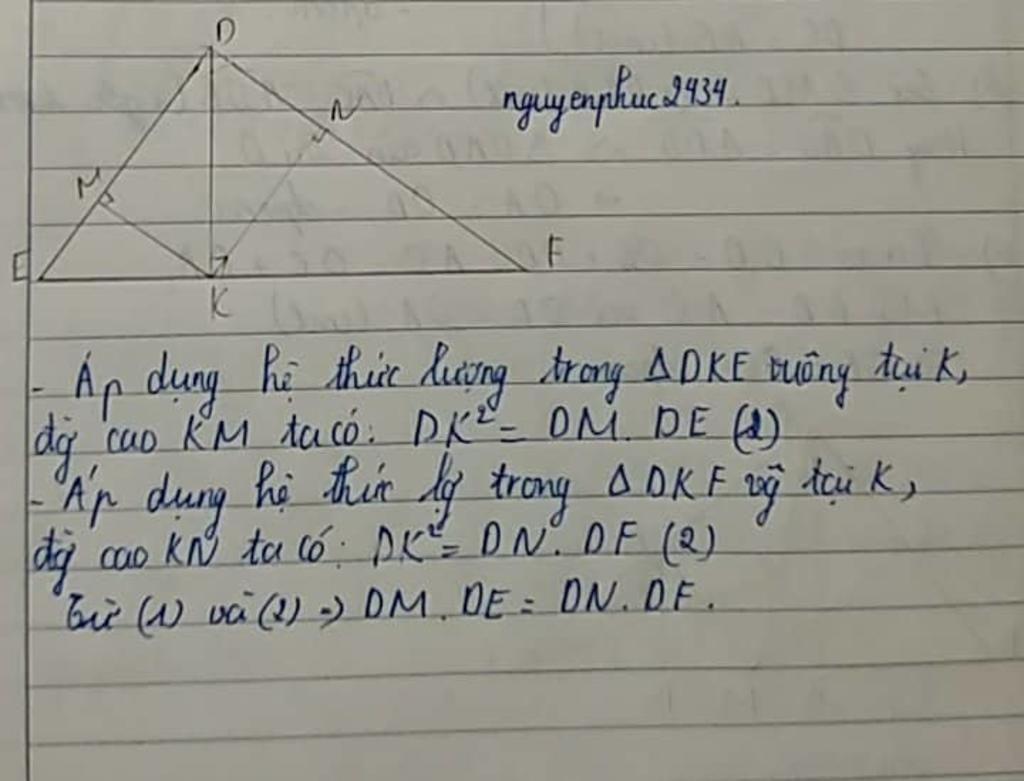 D
nguyenphuc2434.
N
M
E
F
K
- Áp dụng hệ thức lượng trong ΔDKE vuông tại K,
đg cao KM ta có: DK² = DM. DE (1)
- Áp dụng hệ thức lg trong ΔDKF vg tại K,
đg cao KN ta có: DK² = DN. DF (2)
Từ (1) và (2) => DM. DE = DN. DF.